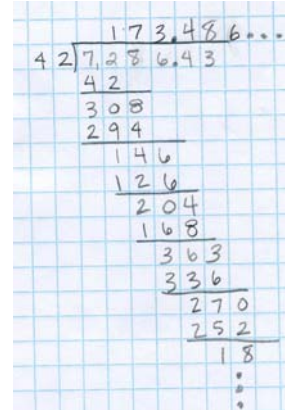 173.486...
42)7,286.43
42
308
294
146
126
204
168
363
336
270
252
18
⋮